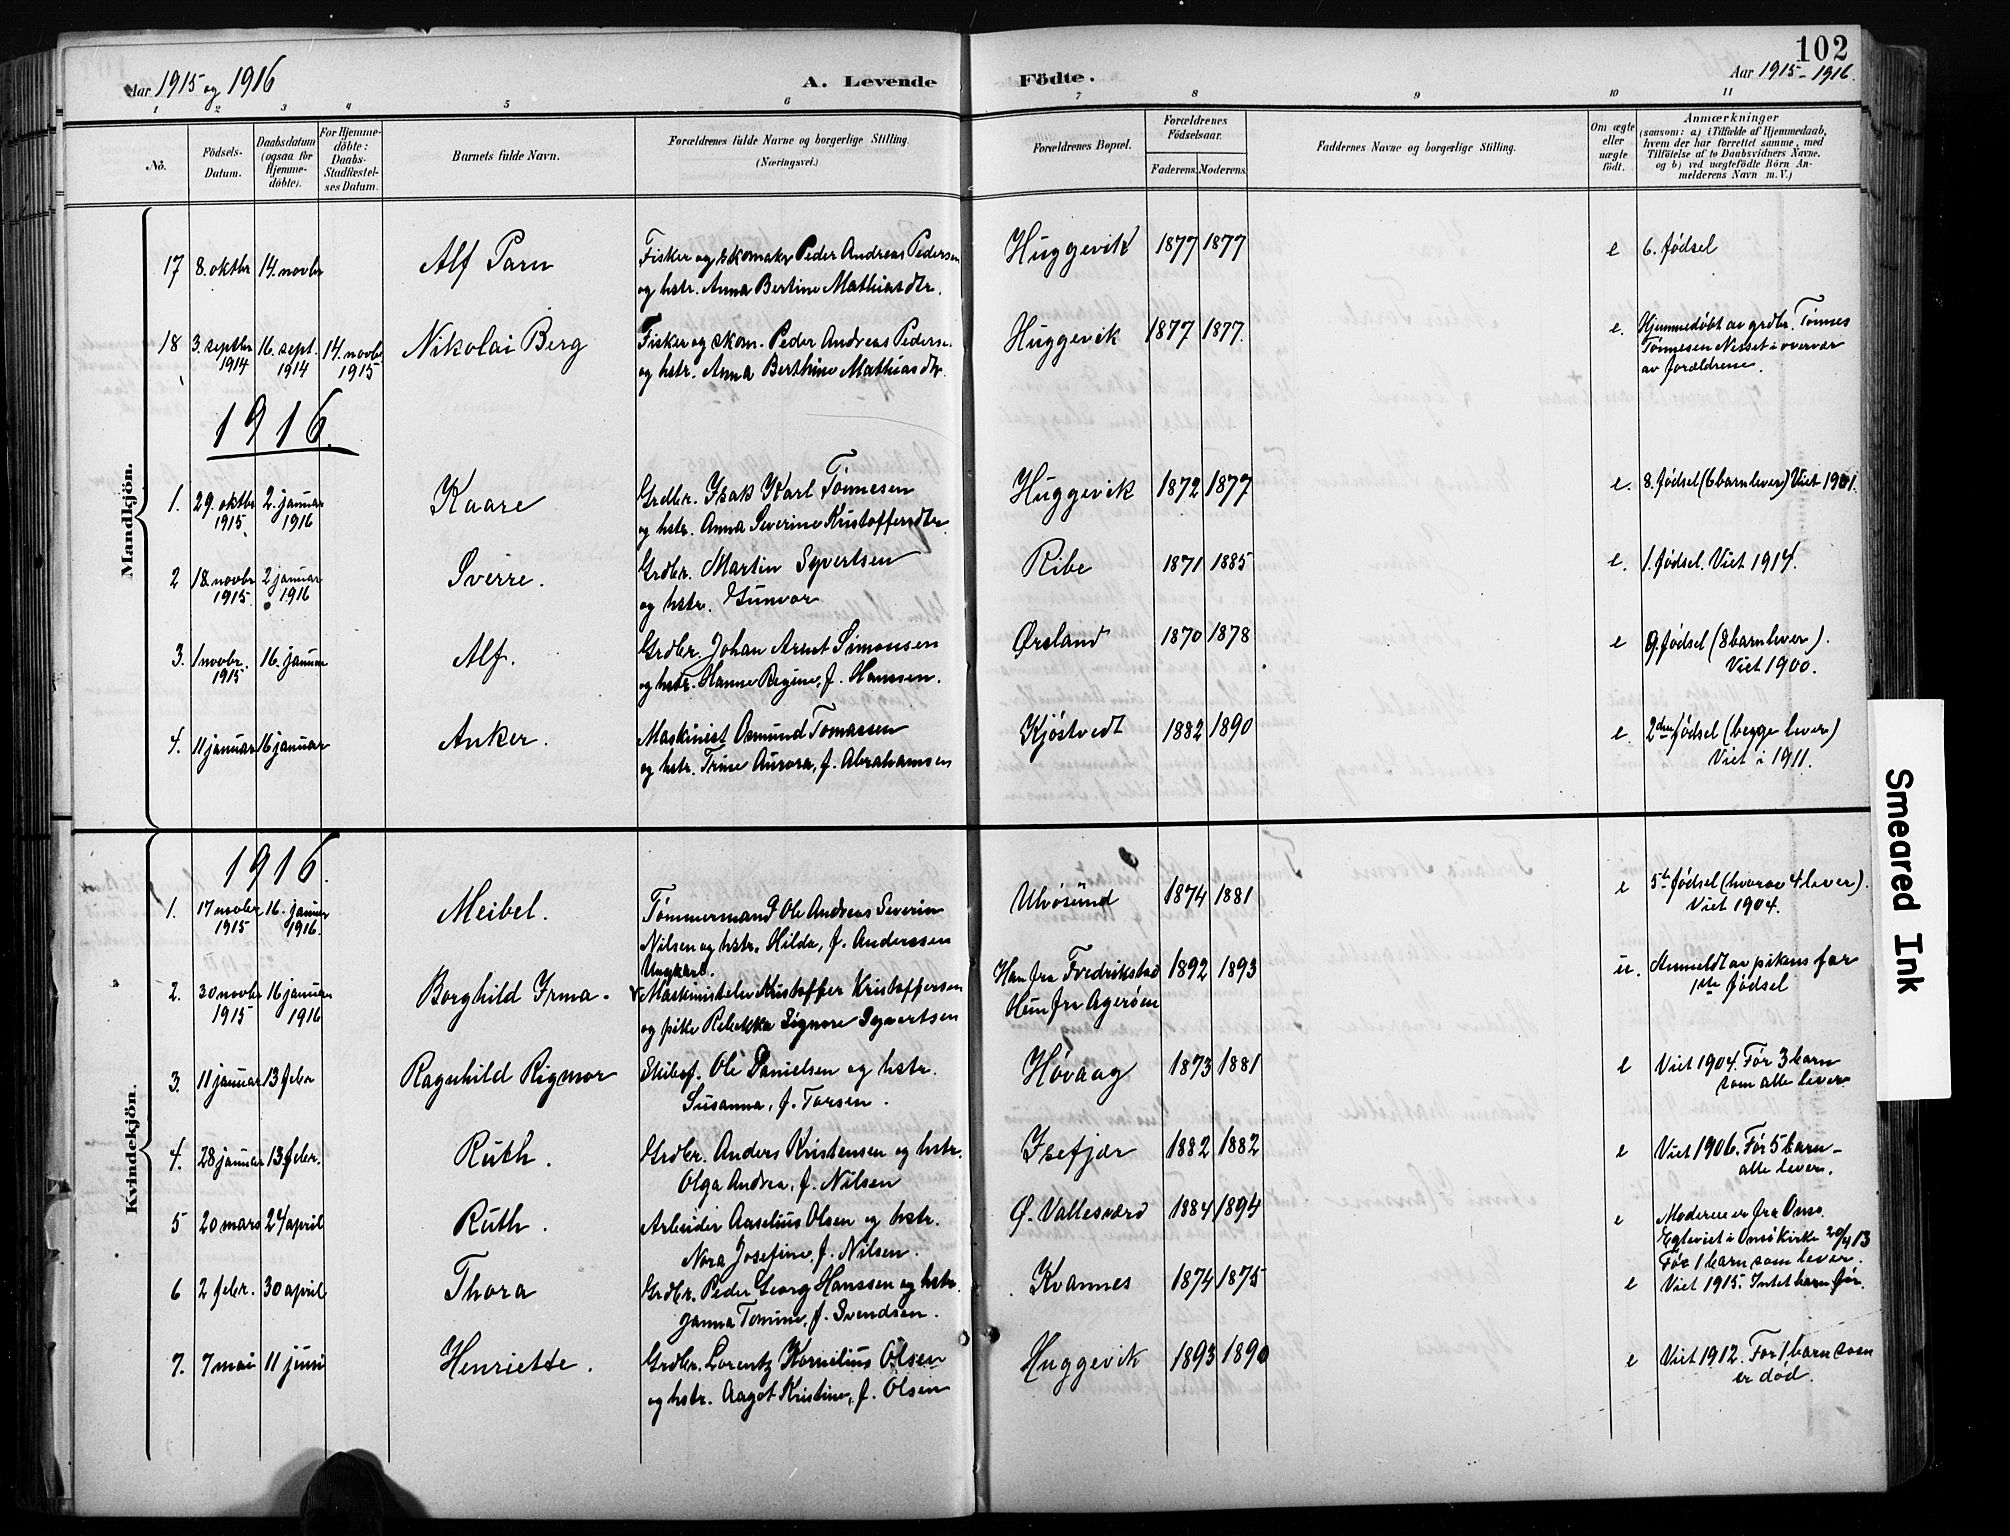 102
Aar 1915 og 1916
A. Levende Födte.
Aar 1915-1916.
1 2 3 4 5 6 7 8 9 10 11
No.
Födsels-Datum.
Daabsdatum (ogsaa for Hjemme-döbte).
For Hjemme-döbte: Daabs-Stadfæstel-ses Datum.
Barnets fulde Navn.
Forældrenes fulde Navne og borgerlige Stilling. (Næringsvei.)
Forældrenes Bopæl.
Forældrenes Födselsaar.
Faderens. Moderens.
Faddernes Navne og borgerlige Stilling.
Om ægte eller uægte födt.
Anmærkninger (saasom: a) i Tilfælde af Hjemmedaab, hvem der har forrettet samme, med Tilföielse af to Daabsvidners Navne. og b) ved uægtefödte Börn An-melderens Navn m. V.)
Mandkjön.
17 8. oktbr 14. novbr Alf Parn Fisker og skomaker Peder Andreas Pedersen Huggevik 1877 1877 e 6. fødsel
og hstr. Anna Bertine Mathiasdtr.
18 3. septbr 1914 16. sept. 1914 14. novbr 1915 Nikolai Berg Fisker og skom. Peder Andreas Pedersen Huggevik 1877 1877. e. Hjemmedøbt av grdbr. Tønnes
og hstr. Anna Berthine Mathiasdtr. Tønnesen Nesset i overvær
av forældrene.
1916.
1. 29. oktbr 1915 2. januar 1916 Kaare Grdbr. Isak Karl Tønnesen Huggevik 1872 1877 e. 8. fødsel (6 barn lever) Viet 1901.
og hstr. Anna Severine Kristoffersdtr
2 18. novbr 1915 2 januar 1916 Sverre. Grdbr. Martin Syvertsen Ribe 1871 1885 e. 1. fødsel. Viet 1914.
og hstr. Gunvor
3. 1 novbr. 1915 16. januar Alf. Grdbr. Johan Arnt Simonsen Ørsland 1870 1878 e 9. fødsel (8 barn lever).
og hstr. Hanne Regine, f. Hanssen. Viet 1900.
4. 11 januar 16 januar Anker. Maskinist Osmund Tomassen Kjøstvedt 1882 1890 e. 2den fødsel (begge lever)
og hstr. Trine Aurora, f. Abrahamsen Viet i 1911.
Kvindekjön.
1916.
1. 17 novbr 1915 16. januar 1916. Meibel. Tømmermand Ole Andreas Severin Ulvøsund 1874 1881 e 5te fødsel (hvorav 4 lever).
Nilsen og hstr. Hilda, f. Anderssen Viet 1904.
Ungkarl.
2. 30 novbr 1915 16 januar 1916 Borghild Irma. Maskinistelev Kristoffer Kristoffersen Han fra Fredrikstad 1892 1893 u. Anmeldt av pikens far
og pike Rebekka Signore Syvertsen Hun fra Agerøen 1ste fødsel
3. 11 januar 13 febr Ragnhild Rigmor Skibsf. Ole Danielsen og hstr. Høvaag 1873 1881 e Viet 1904. Før 3 barn
Susanna, f. Torsen. som alle lever.
4. 28 januar 13. febr. Ruth. Grdbr. Anders Kristensen og hstr. Isefjær 1882 1882 e Viet 1906. Før 5 barn -
Olga Andrea, f. Nilsen alle lever.
5 20 mars 24 april Ruth. Arbeider Aaselius Olsen og hstr. Ø. Vallesværd 1884 1894 e Moderen er fra Onsø.
Nora Josefine f. Nilsen. Egteviet i Onsø kirke 20/4 13
Før 1 barn som lever.
6 2 febr. 30 april Thora Grdbr. Peder Georg Hanssen og hstr. Kvannes 1874 1875 e Viet 1915. Intet barn før.
Janna Tomine, f. Svendsen.
7. 7 mai 11 juni Henriette. Grdbr. Lorentz Kornelius Olsen Huggevik 1893 1890 e Viet 1912. Før 1 barn som
og hstr. Aagot Kristine, f. Olsen er død.
Smeared Ink